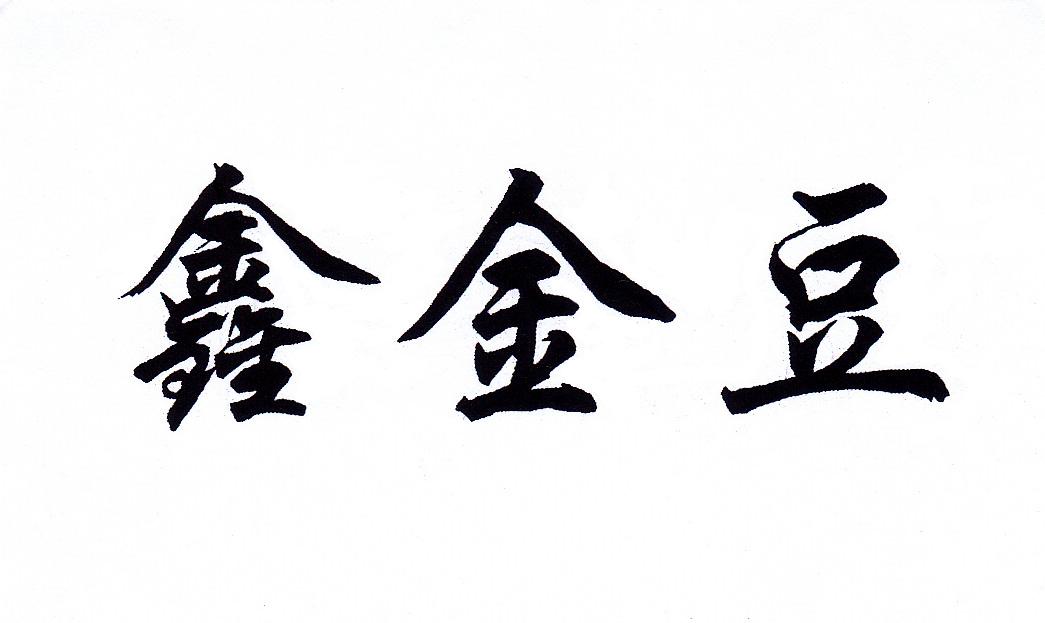 鑫金豆